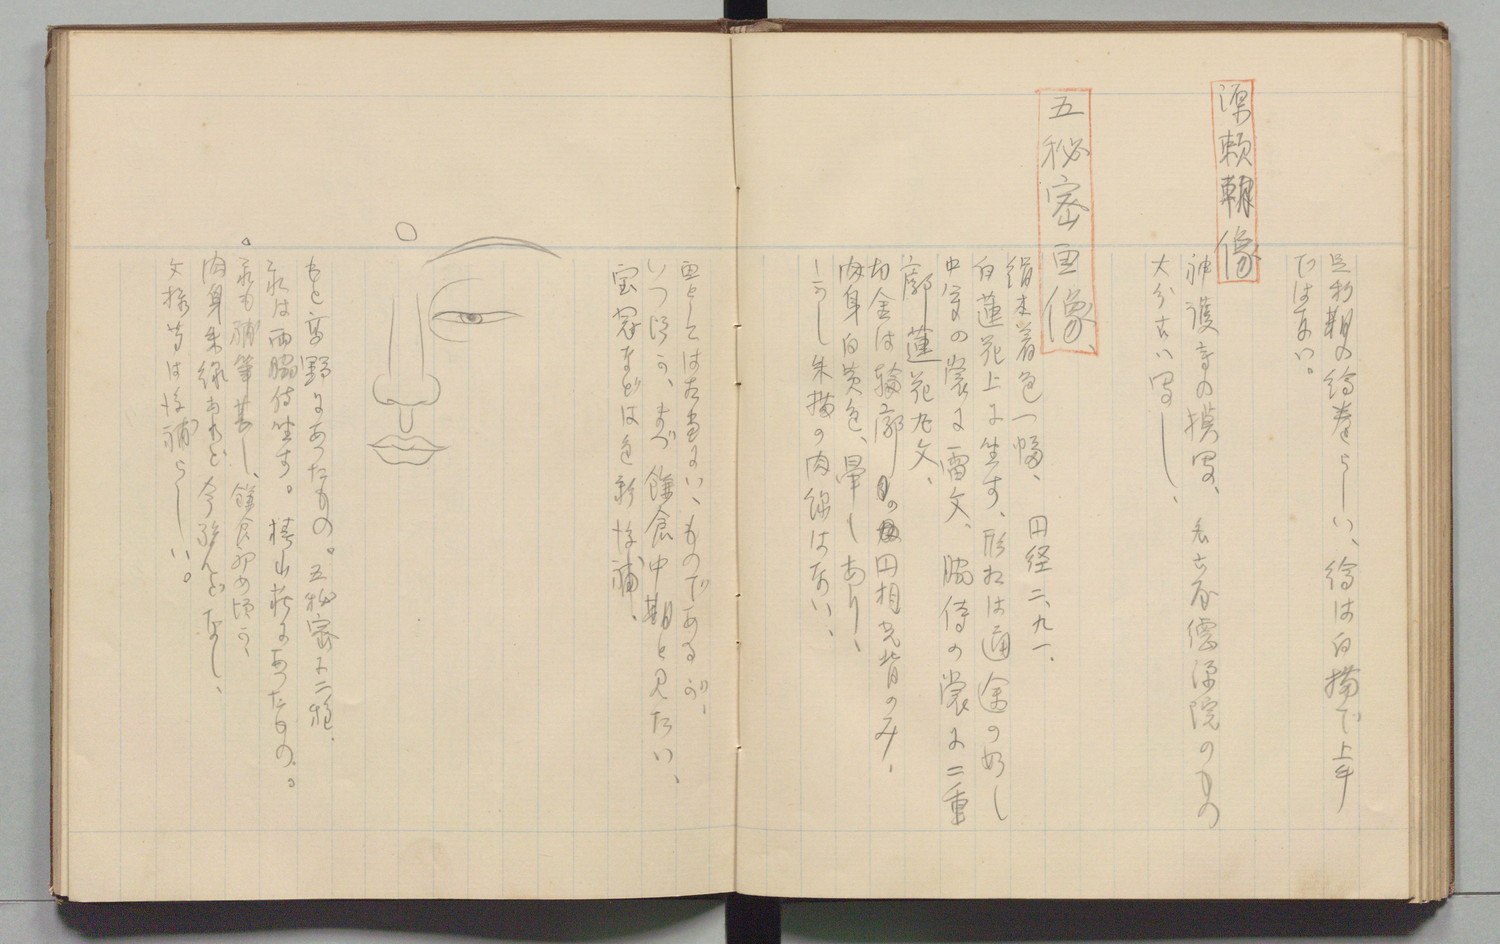 足利期の絵巻らしい、絵は白描で上手
ではない。
源頼朝像
神護寺の模写、名古屋徳源院のもの
大分古い写し、
五秘密画像、
絹本着色一幅、円経二、九一、
白蓮花上に坐す、形相は通途の如し
中尊の裳に雷文、脇侍の裳に二重
廓蓮花丸文、
切金は輪廓の円相光背のみ、
肉身白黄色、暈しあり、
しかし朱描の肉線はない、
画としては相当よいものであるが、
いつ頃か、まづ鎌倉中期と見たい、
宝冠などは色新後補、
もと高野にあったもの。五秘密に二種、
一は両脇侍坐す。横山荘にあったもの。
。一も補筆甚し、鎌倉初め頃か、
肉身朱線あれど今殆んどなし、
文様等は後補らしい。